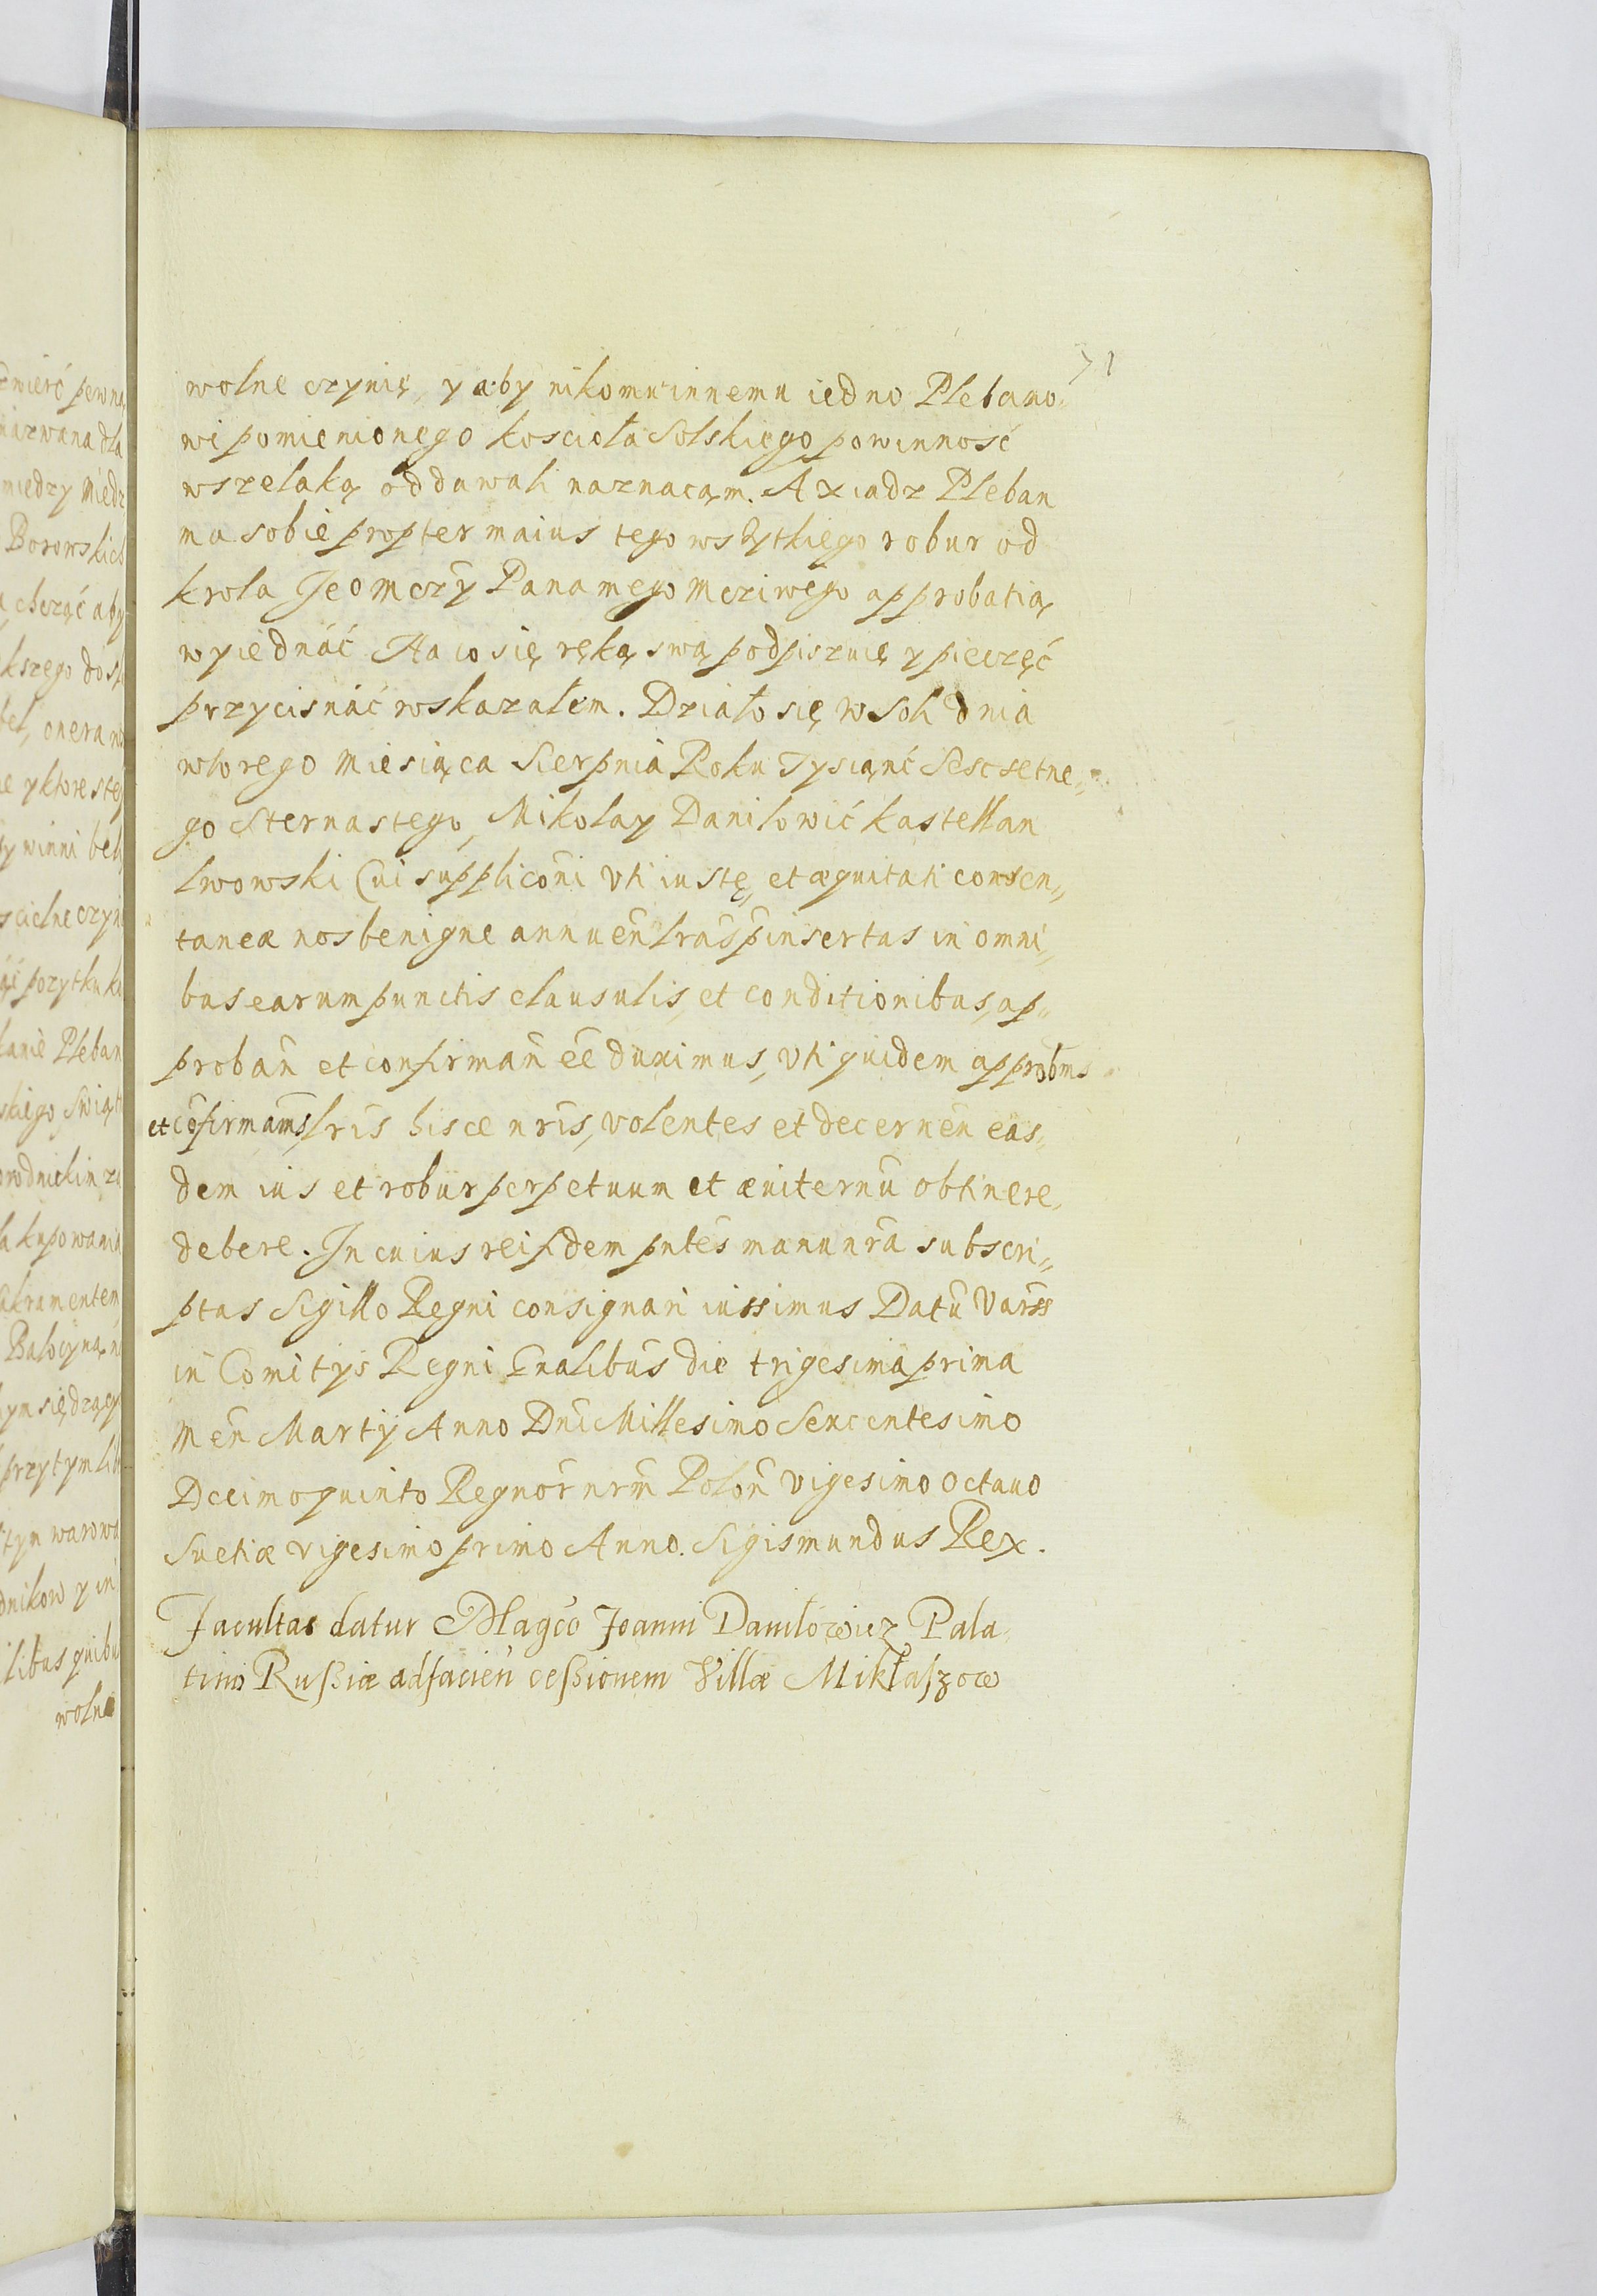 71
wolne czynię, y aby nikomu innemu iedno Plebano„
wi pomienionego koscioła Solskiego powinność
wszelaką oddawali naznacąm. A xiadz Pleban
ma sobie propter maius tego wszytkiego robur od
krola Jeo Mczy Pana mego Mcziwego approbatią
wyiednáć Na co się ręką swą podpiszuię y pieczęć
przycisnáć roskazałem. Działo się w Soli dnia
wtorego Miesiąca Sierpnia Roku Tysiąnć Sescsetne„
go Sternastego, Mikolay Daniłowić kastellan
lwowski Cui suppliconi vti iustę, et æquitati consen„
taneæ nos benigne annuen̄ lrās p̄insertas in omni„
bus earum punctis clausulis, et conditionibus, ap„
proban̄ et confirman̄ ēē duximus, vti quidem approbm̄s
et cōfirmam̄s, lrīs hisce nrīs, volentes et decernen̄ eas„
dem ius et robur perpetuum et æuiternū obtinere,
debere. In cuius rei fidem pn̄tes manu nrā subscri„
ptas Sigillo Regni consignari iussimus Datū Varss
in Comitys Regni Gn̄alibus die trigesima prima
Men̄ Martÿ Anno Dni̅ Millesimo Sexcentesimo
Decimoquinto Regnor̄ nrm̄ Polon̄ vigesimo octauo
Suetiæ vigesimo primo Anno. Sigismundus Rex.
Facultas datur Magco Joanni Daniłowicz Pala„
tino Rußiæ ad facien̄ ceßionem Villæ Mikłaszow